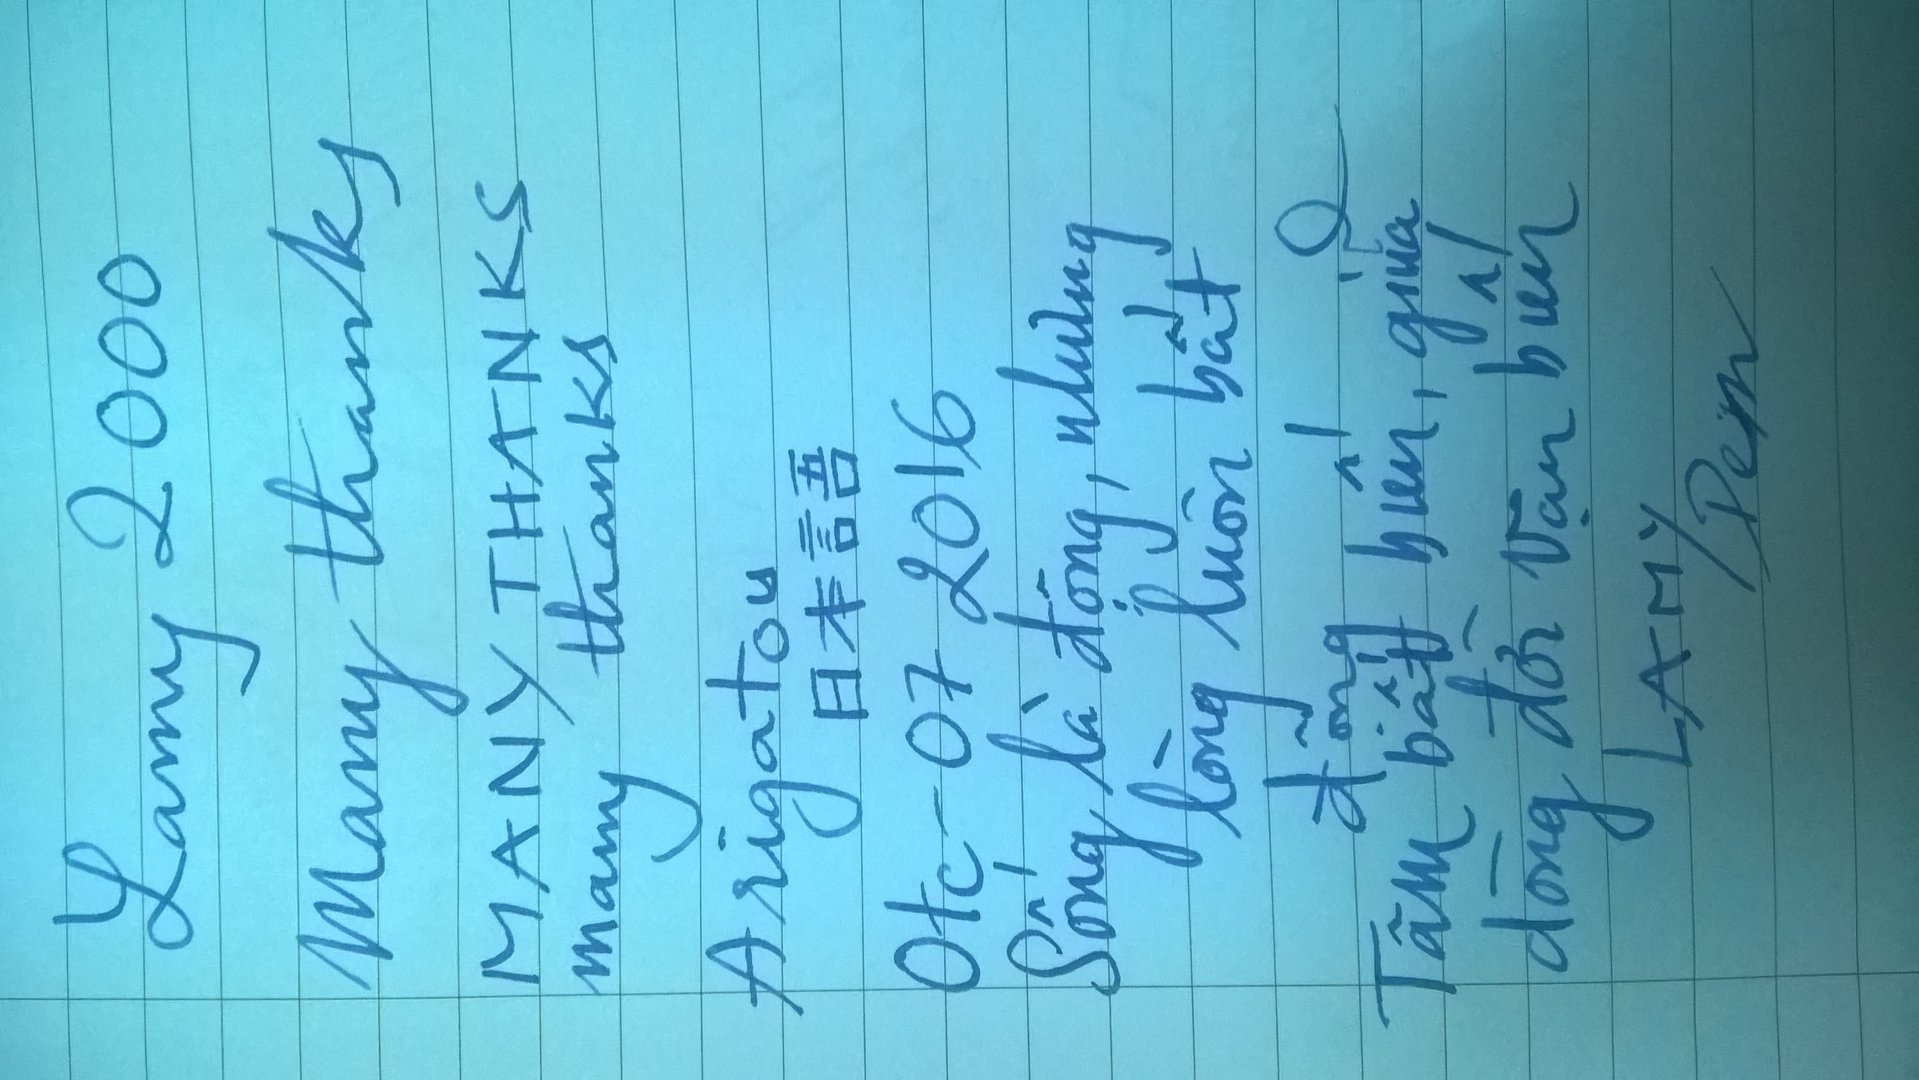 Lamy 2000
Many thanks
MANY THANKS
many thanks
Arigatou
日本語
Otc-07 2016
Sống là động, nhưng
lòng luôn bất
động
Tâm bất biến, giữa
dòng đời vạn biến
LAMY
Pen